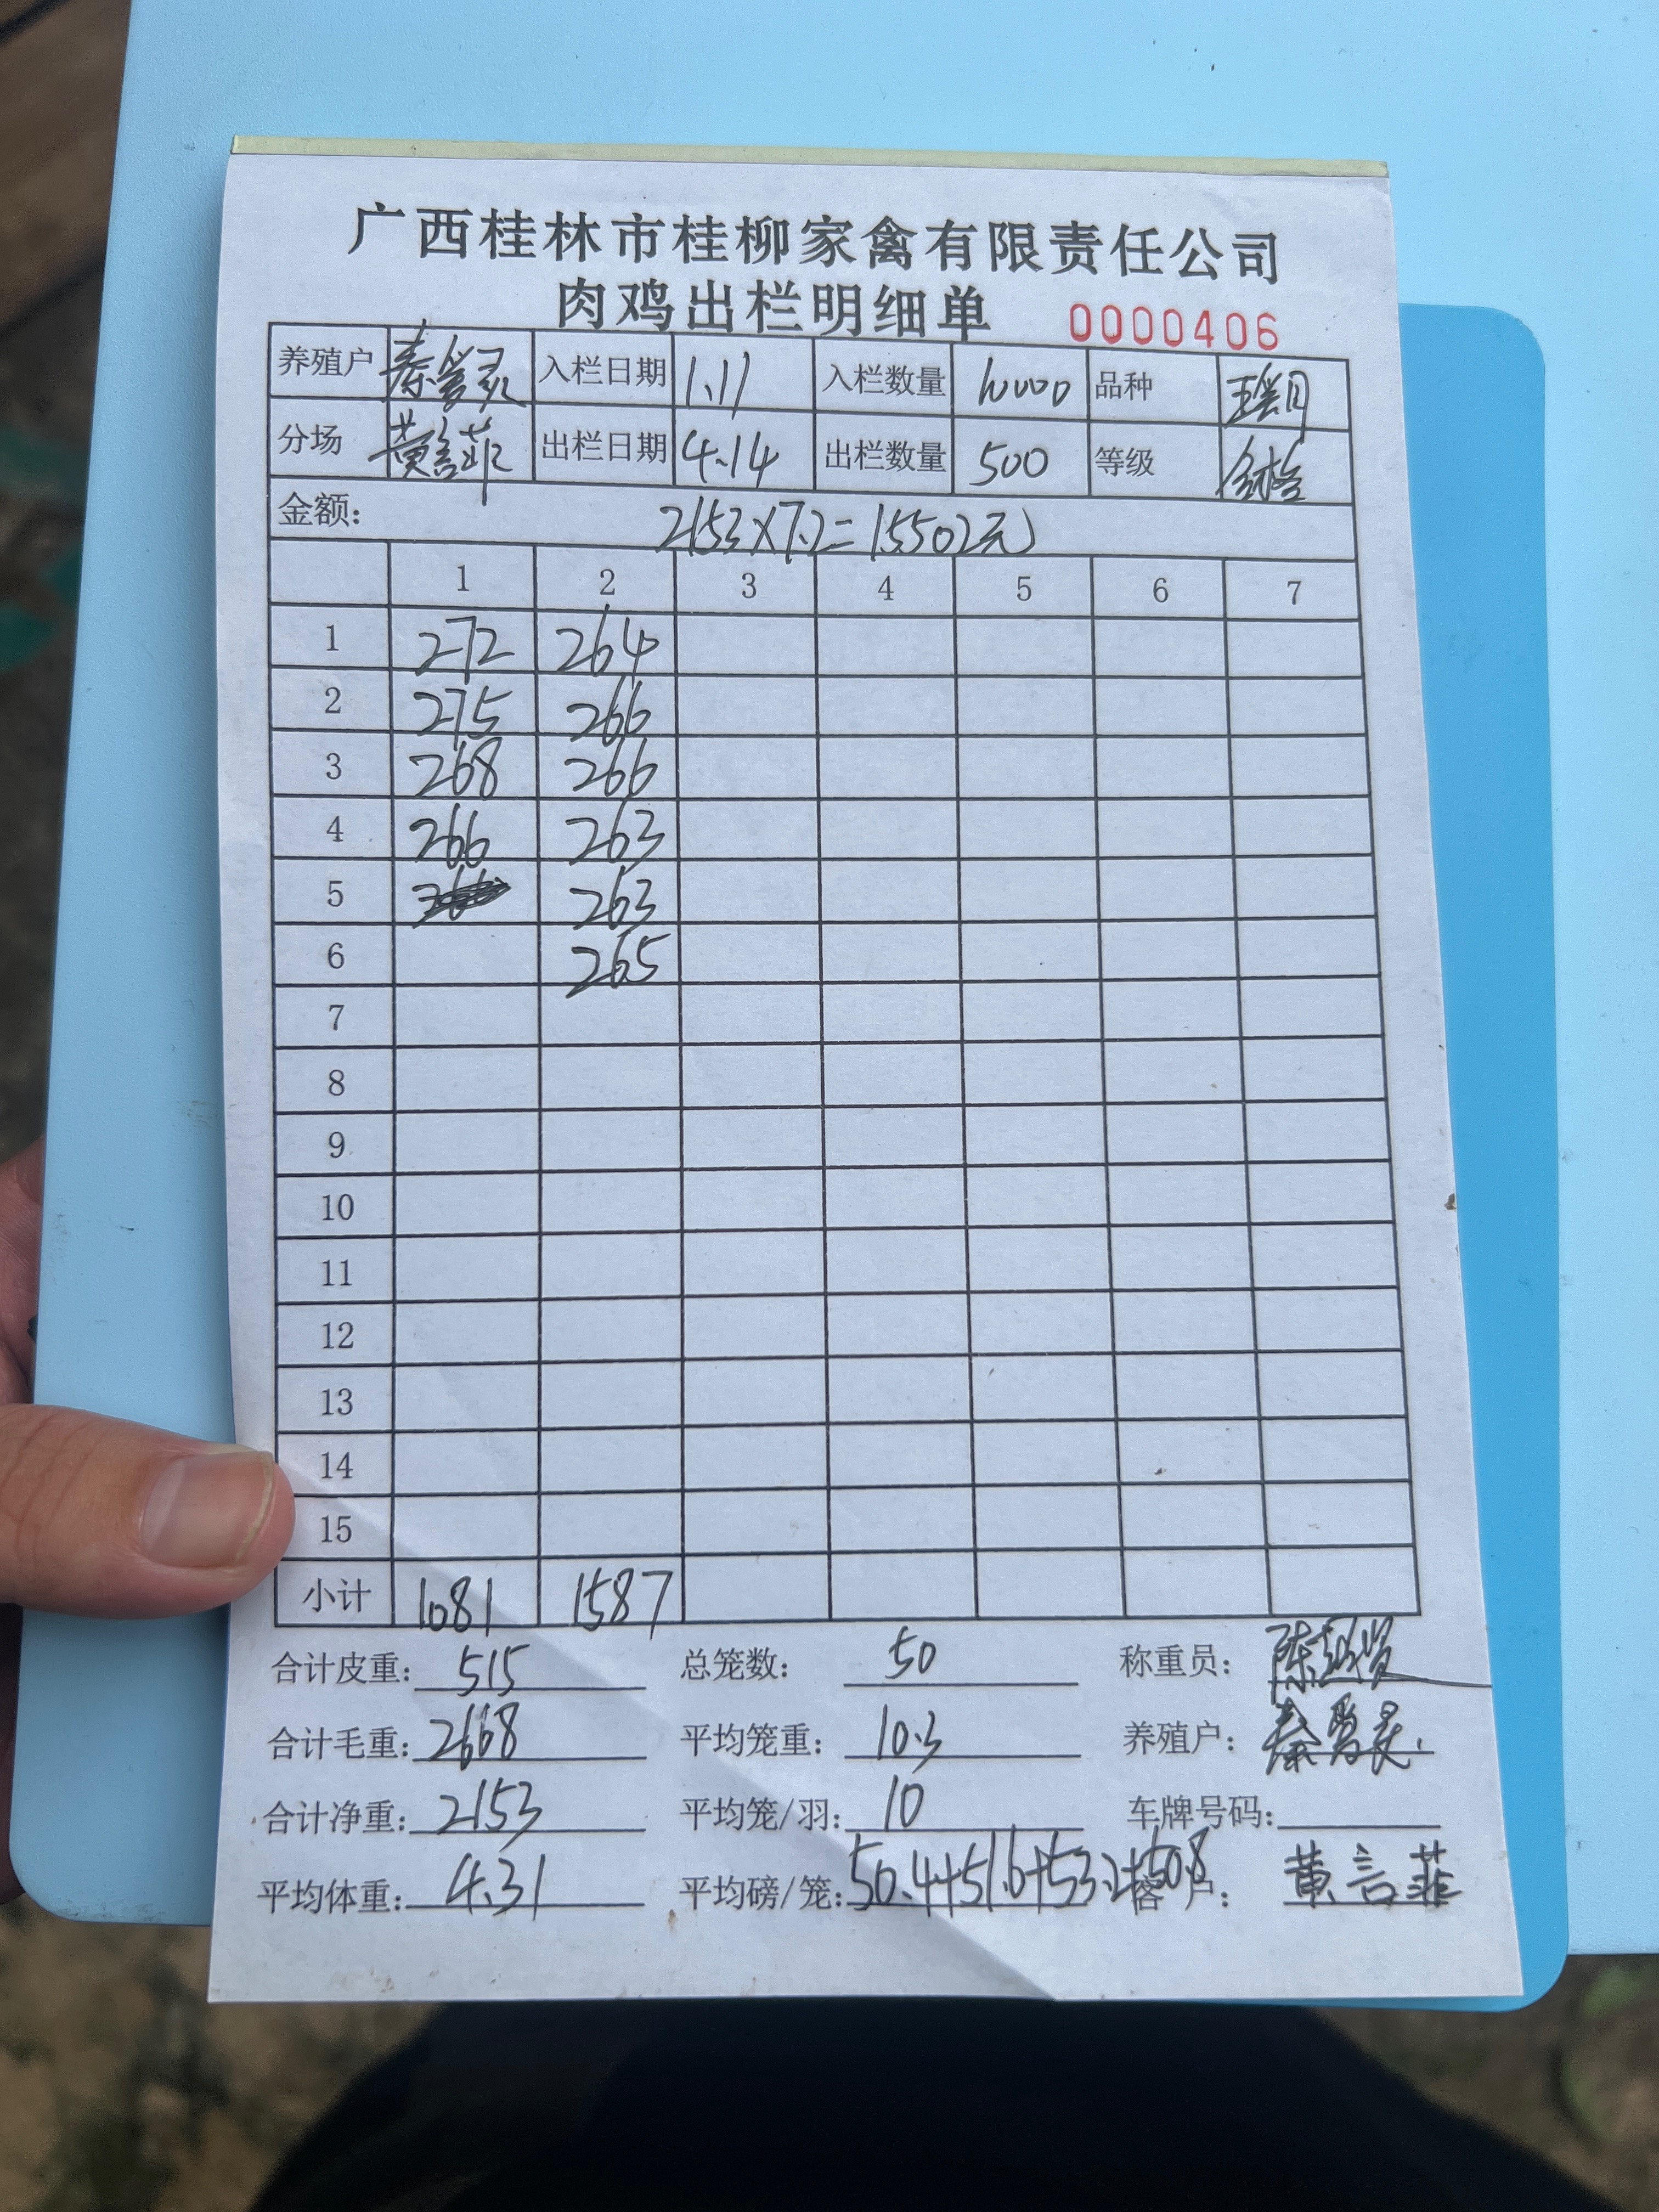 广西桂林市桂柳家禽有限责任公司
肉鸡出栏明细单 0000406
养殖户 秦 入栏日期 1.11 入栏数量 10000 品种
分场 黄言菲 出栏日期 4.14 出栏数量 500 等级
金额: 2153×7.2=15502元
1 2 3 4 5 6 7
1 272 264
2 275 266
3 268 266
4 266 263
5 263
6 265
7
8
9
10
11
12
13
14
15
小计 1081 1587
合计皮重: 515 总笼数: 50 称重员: 陈
合计毛重: 2668 平均笼重: 10.3 养殖户: 秦
合计净重: 2153 平均笼/羽: 10 车牌号码:
平均体重: 4.31 平均磅/笼: 50.4+51.6+53.2+50.8 客户: 黄言菲